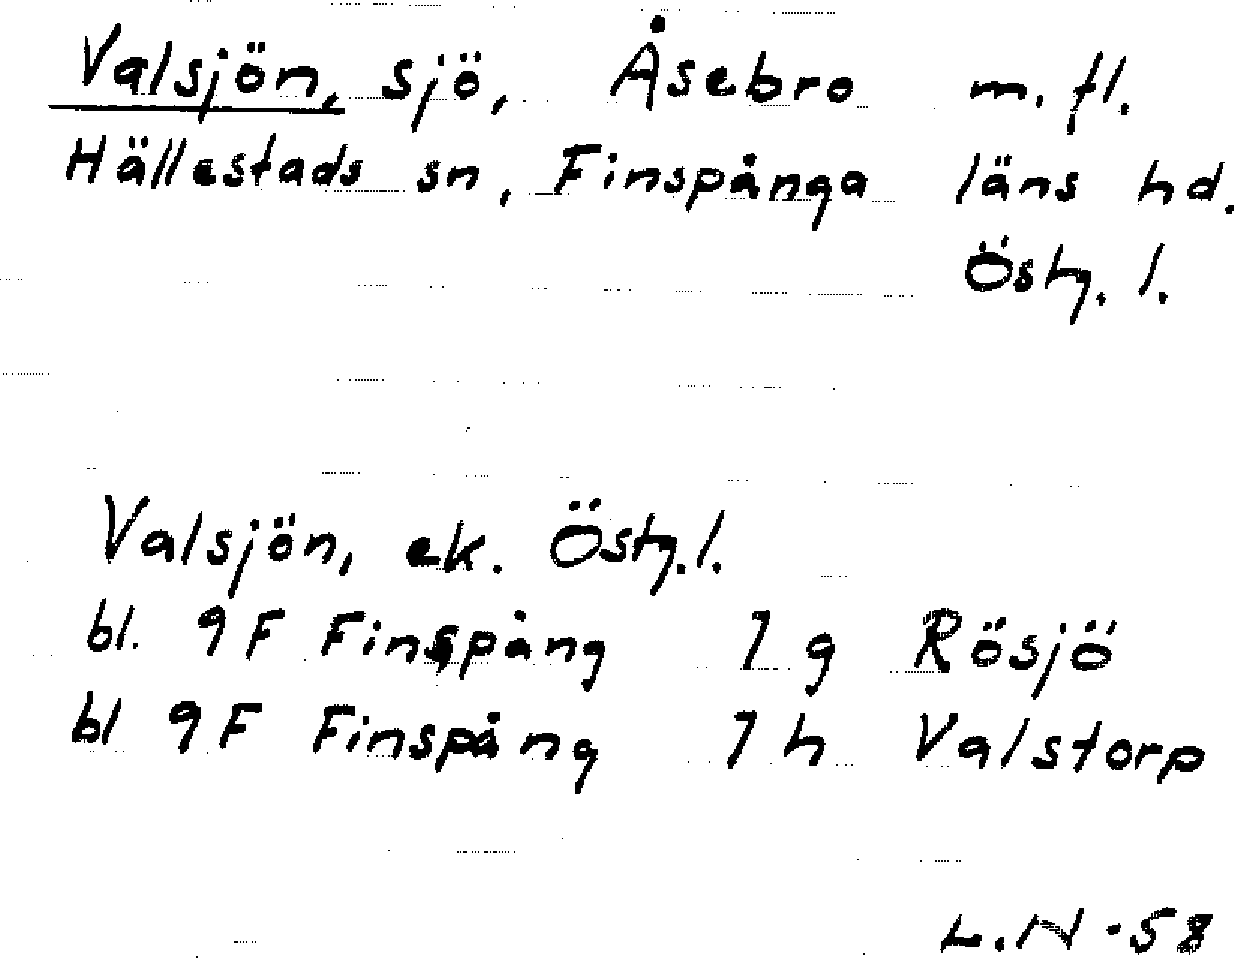 Valsjön, sjö, Åsebro m. fl.
Hällestads sn, Finspånga läns hd.
Östg. l.
Valsjön, ek. Östg. l.
bl. 9F Finspång 7 g Rösjö
bl 9F Finspång 7 h Valstorp
L.N -58